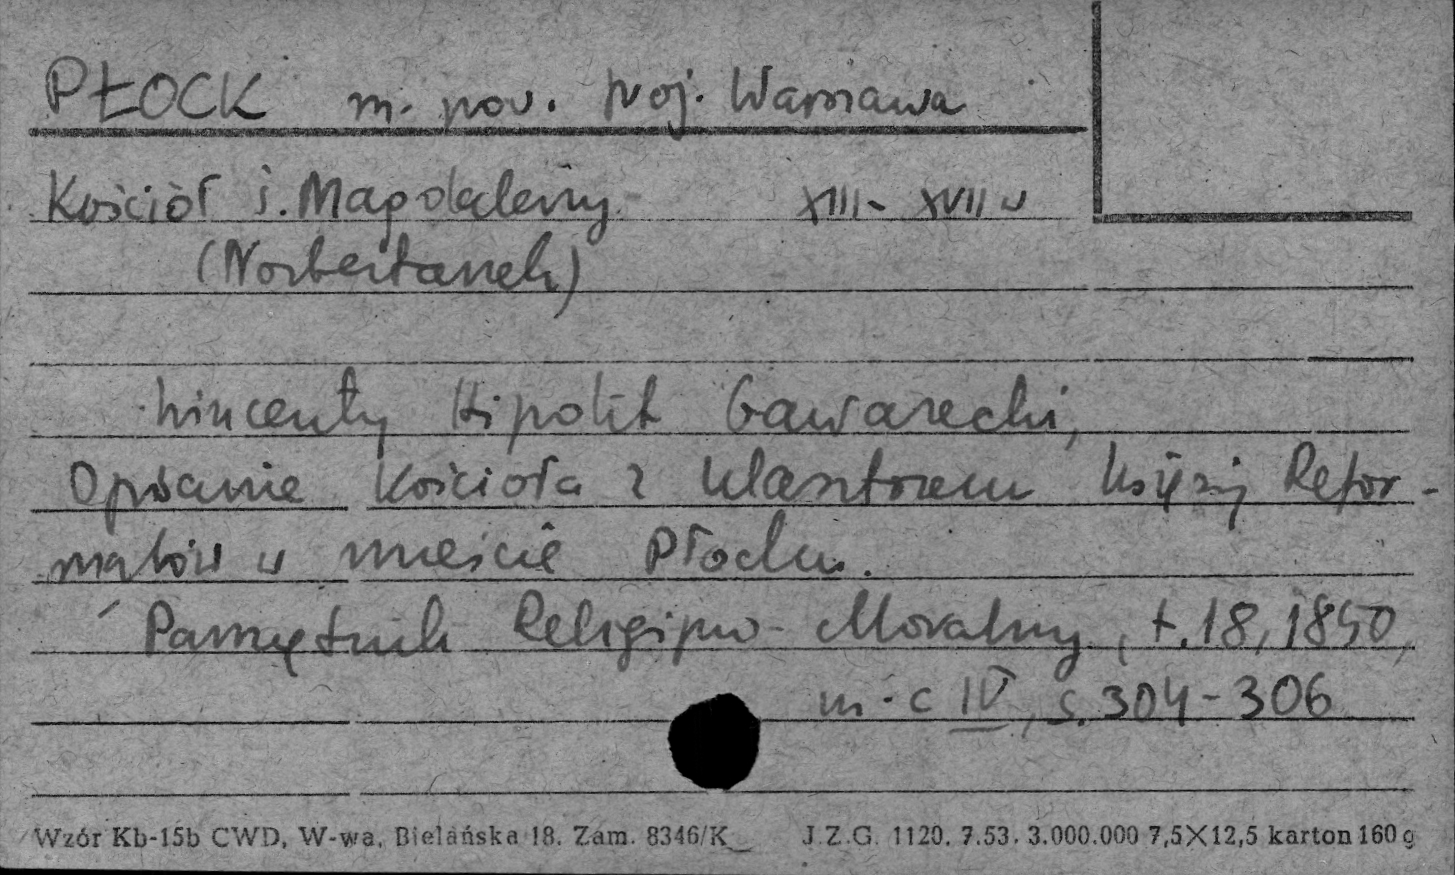 PŁOCK m. pow. woj. Warszawa
Kościół ś. Magdaleny XIII - XVII w
(Norbertanek)
Wincenty Hipolit Gawarecki,
Opisanie kościoła z klasztorem księży Refor-
matów w mieście Płocku.
Pamiętnik Religijno-Moralny, t. 18, 1850,
m-c IV, s. 304-306
Wzór Kb-15b CWD, W-wa, Bielańska 18. Zam. 8346/K J.Z.G. 1120. 7.53. 3.000.000 7,5X12,5 karton 160 g